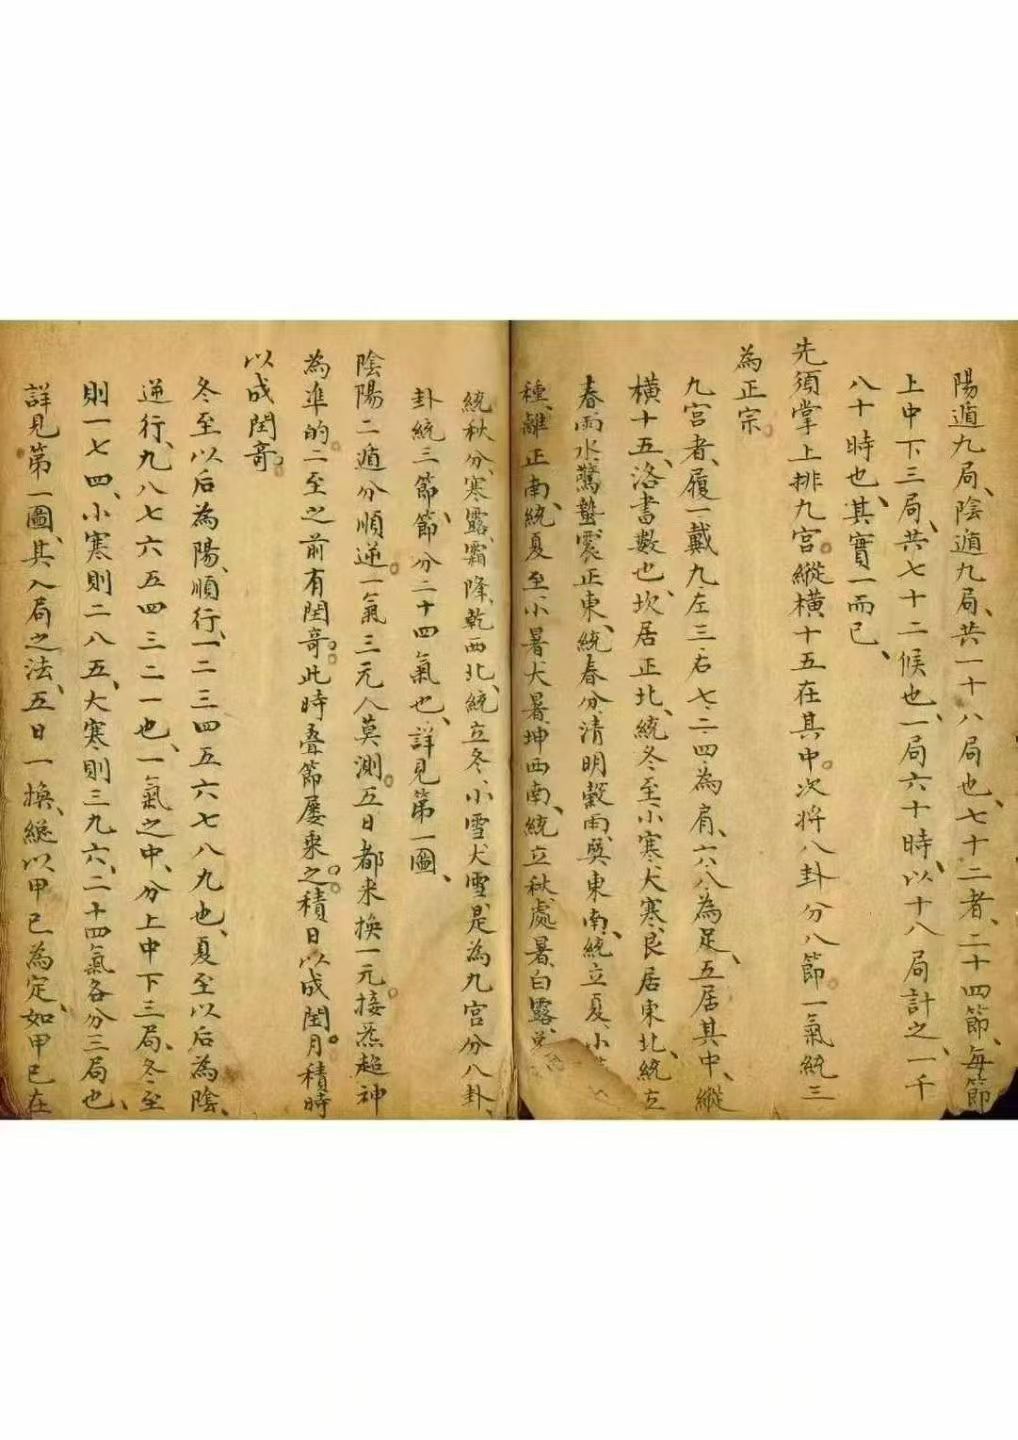 陽遁九局、陰遁九局、共一十八局也、七十二者、二十四節、每節
上中下三局、共七十二候也、一局六十時、以十八局計之、一千
八十時也、其實一而已、
先須掌上排九宮。縱橫十五在其中。次將八卦分八節。一氣統三
為正宗。
九宮者、履一戴九、左三右七、二四為肩、六八為足、五居其中、縱
橫十五、洛書數也、坎居正北、統冬至、小寒、大寒、艮居東北、統立
春、雨水、驚蟄、震正東、統春分、清明、穀雨、巽東南、統立夏、小
種、離正南、統夏至、小暑、大暑、坤西南、統立秋、處暑、白露、兌
統秋分、寒露、霜降、乾西北、統立冬、小雪、大雪、是為九宮分八卦、
卦統三節、節分二十四氣也、詳見第一圖、
陰陽二遁分順逆。一氣三元人莫測。五日都來換一元。接炁超神
為準的。二至之前有閏奇。此時疊節屢乘之。積日以成閏月。積時
以成閏奇。
冬至以后為陽、順行、一二三四五六七八九也、夏至以后為陰、
逆行、九八七六五四三二一也、一氣之中、分上中下三局、冬至
則一七四、小寒則二八五、大寒則三九六、二十四氣各分三局也、
詳見第一圖、其入局之法、五日一換、総以甲巳為定、如甲巳在